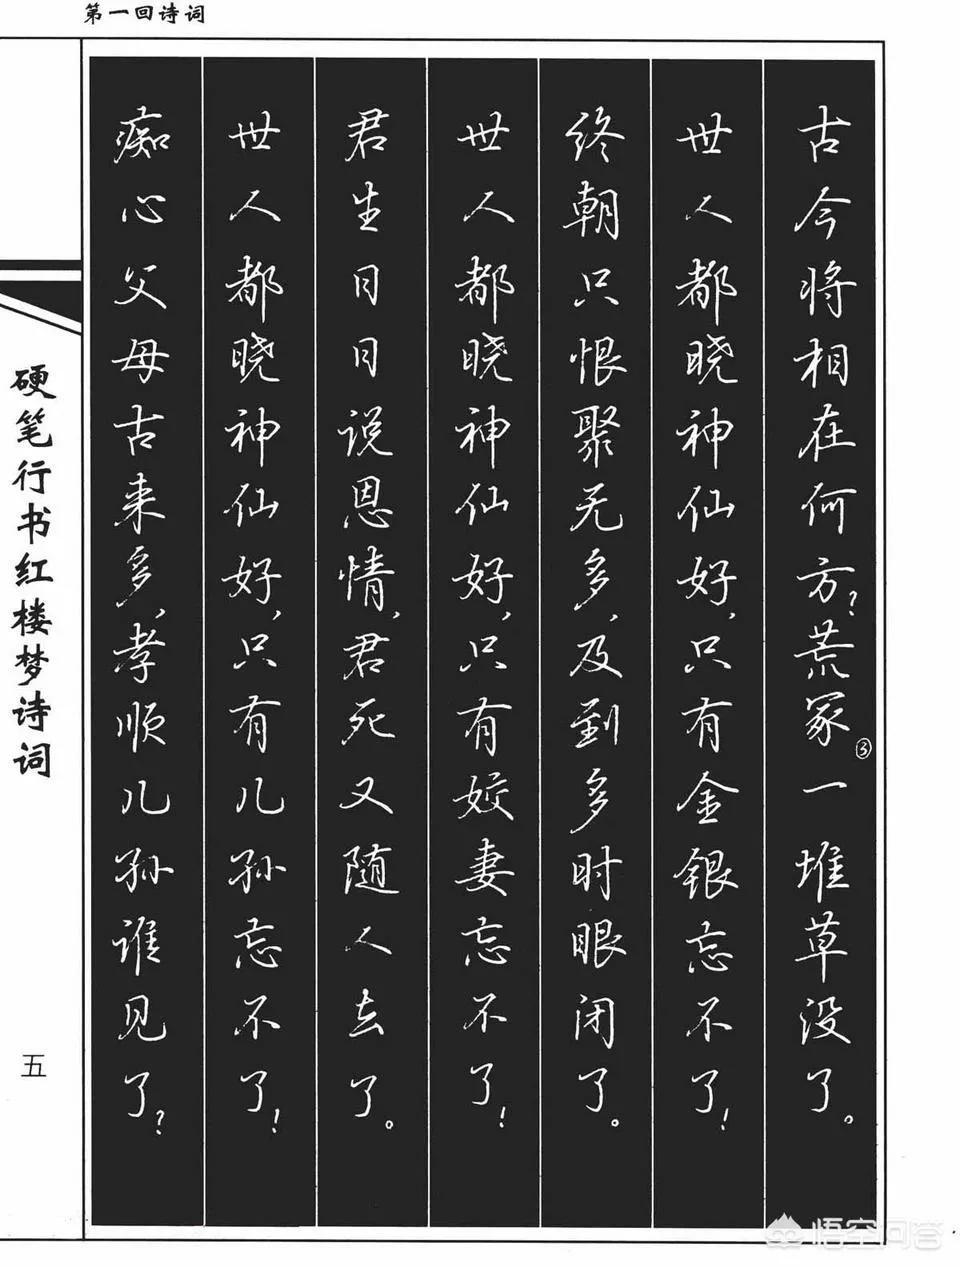 第一回诗词
古今将相在何方?荒冢③一堆草没了。
世人都晓神仙好,只有金银忘不了!
终朝只恨聚无多,及到多时眼闭了。
世人都晓神仙好,只有姣妻忘不了!
君生日日说恩情,君死又随人去了。
世人都晓神仙好,只有儿孙忘不了!
痴心父母古来多,孝顺儿孙谁见了?
硬笔行书红楼梦诗词
五
悟空问答